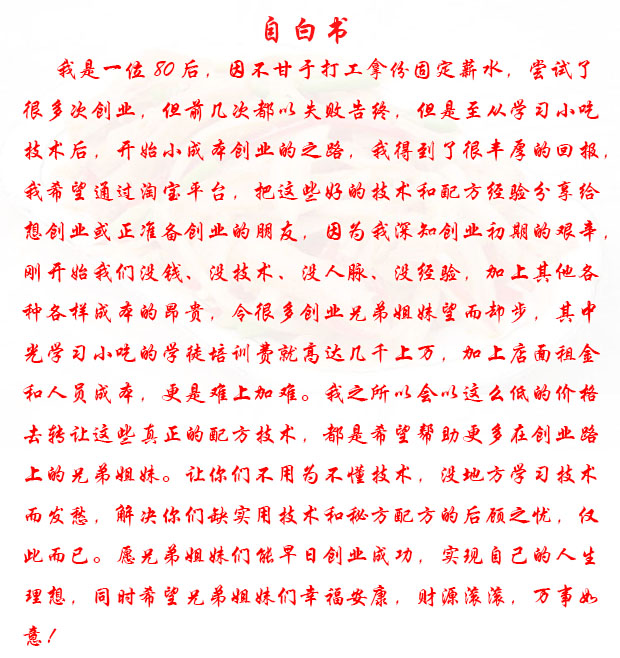 自白书
我是一位80后，因不甘于打工拿份固定薪水，尝试了
很多次创业，但前几次都以失败告终，但是至从学习小吃
技术后，开始小成本创业的之路，我得到了很丰厚的回报，
我希望通过淘宝平台，把这些好的技术和配方经验分享给
想创业或正准备创业的朋友，因为我深知创业初期的艰辛，
刚开始我们没钱、没技术、没人脉、没经验，加上其他各
种各样成本的昂贵，令很多创业兄弟姐妹望而却步，其中
光学习小吃的学徒培训费就高达几千上万，加上店面租金
和人员成本，更是难上加难。我之所以会以这么低的价格
去转让这些真正的配方技术，都是希望帮助更多在创业路
上的兄弟姐妹。让你们不用为不懂技术，没地方学习技术
而发愁，解决你们缺实用技术和秘方配方的后顾之忧，仅
此而已。愿兄弟姐妹们能早日创业成功，实现自己的人生
理想，同时希望兄弟姐妹们幸福安康，财源滚滚，万事如
意！